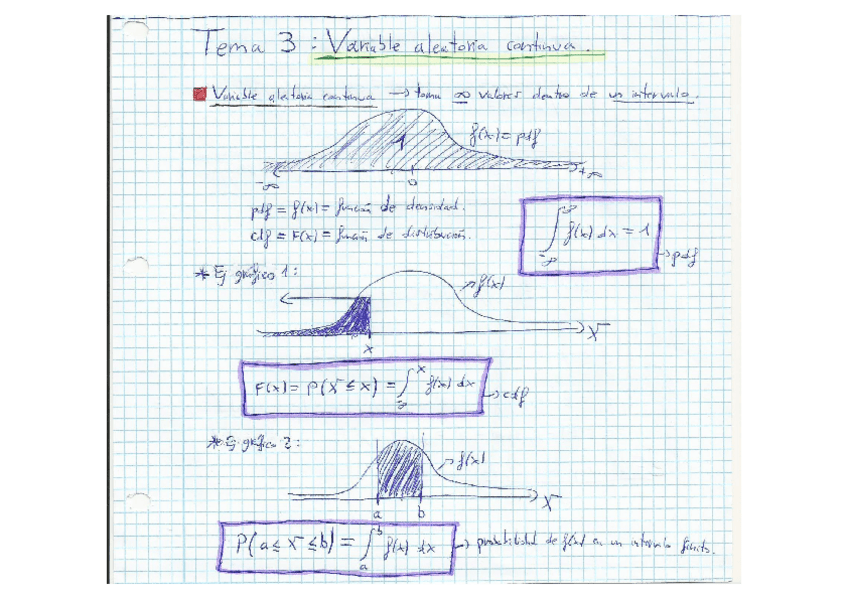 Tema 3 : Variable aleatoria continua.
Variable aleatoria continua → toma ∞ valores dentro de un intervalo.
f(x) = pdf
1
-∞ 0 +∞
pdf = f(x) = función de densidad.
cdf = F(x) = función de distribución.
∫_{-∞}^{∞} f(x) dx = 1
→ pdf
* Ej gráfico 1:
→ f(x)
X
x
F(x) = P(X ≤ x) = ∫_{-∞}^{x} f(x) dx → cdf
* Ej gráfico 2:
→ f(x)
X
a b
P(a ≤ X ≤ b) = ∫_{a}^{b} f(x) dx → probabilidad de f(x) en un intervalo finito.